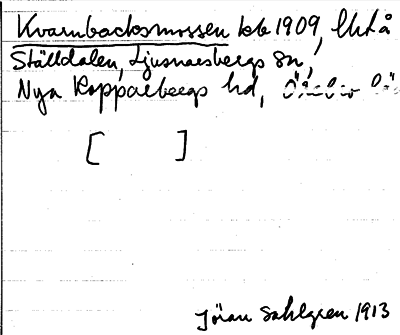 Kvarnbacksmossen kb 1909, Uhtå
Ställdalen, Ljusnarsbergs sn,
Nya Kopparbergs hd, Örebro
[ ]
Jöran Sahlgren 1913